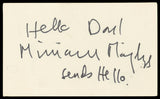 Hello Dad
Miriam Margolyes
sends Hello.